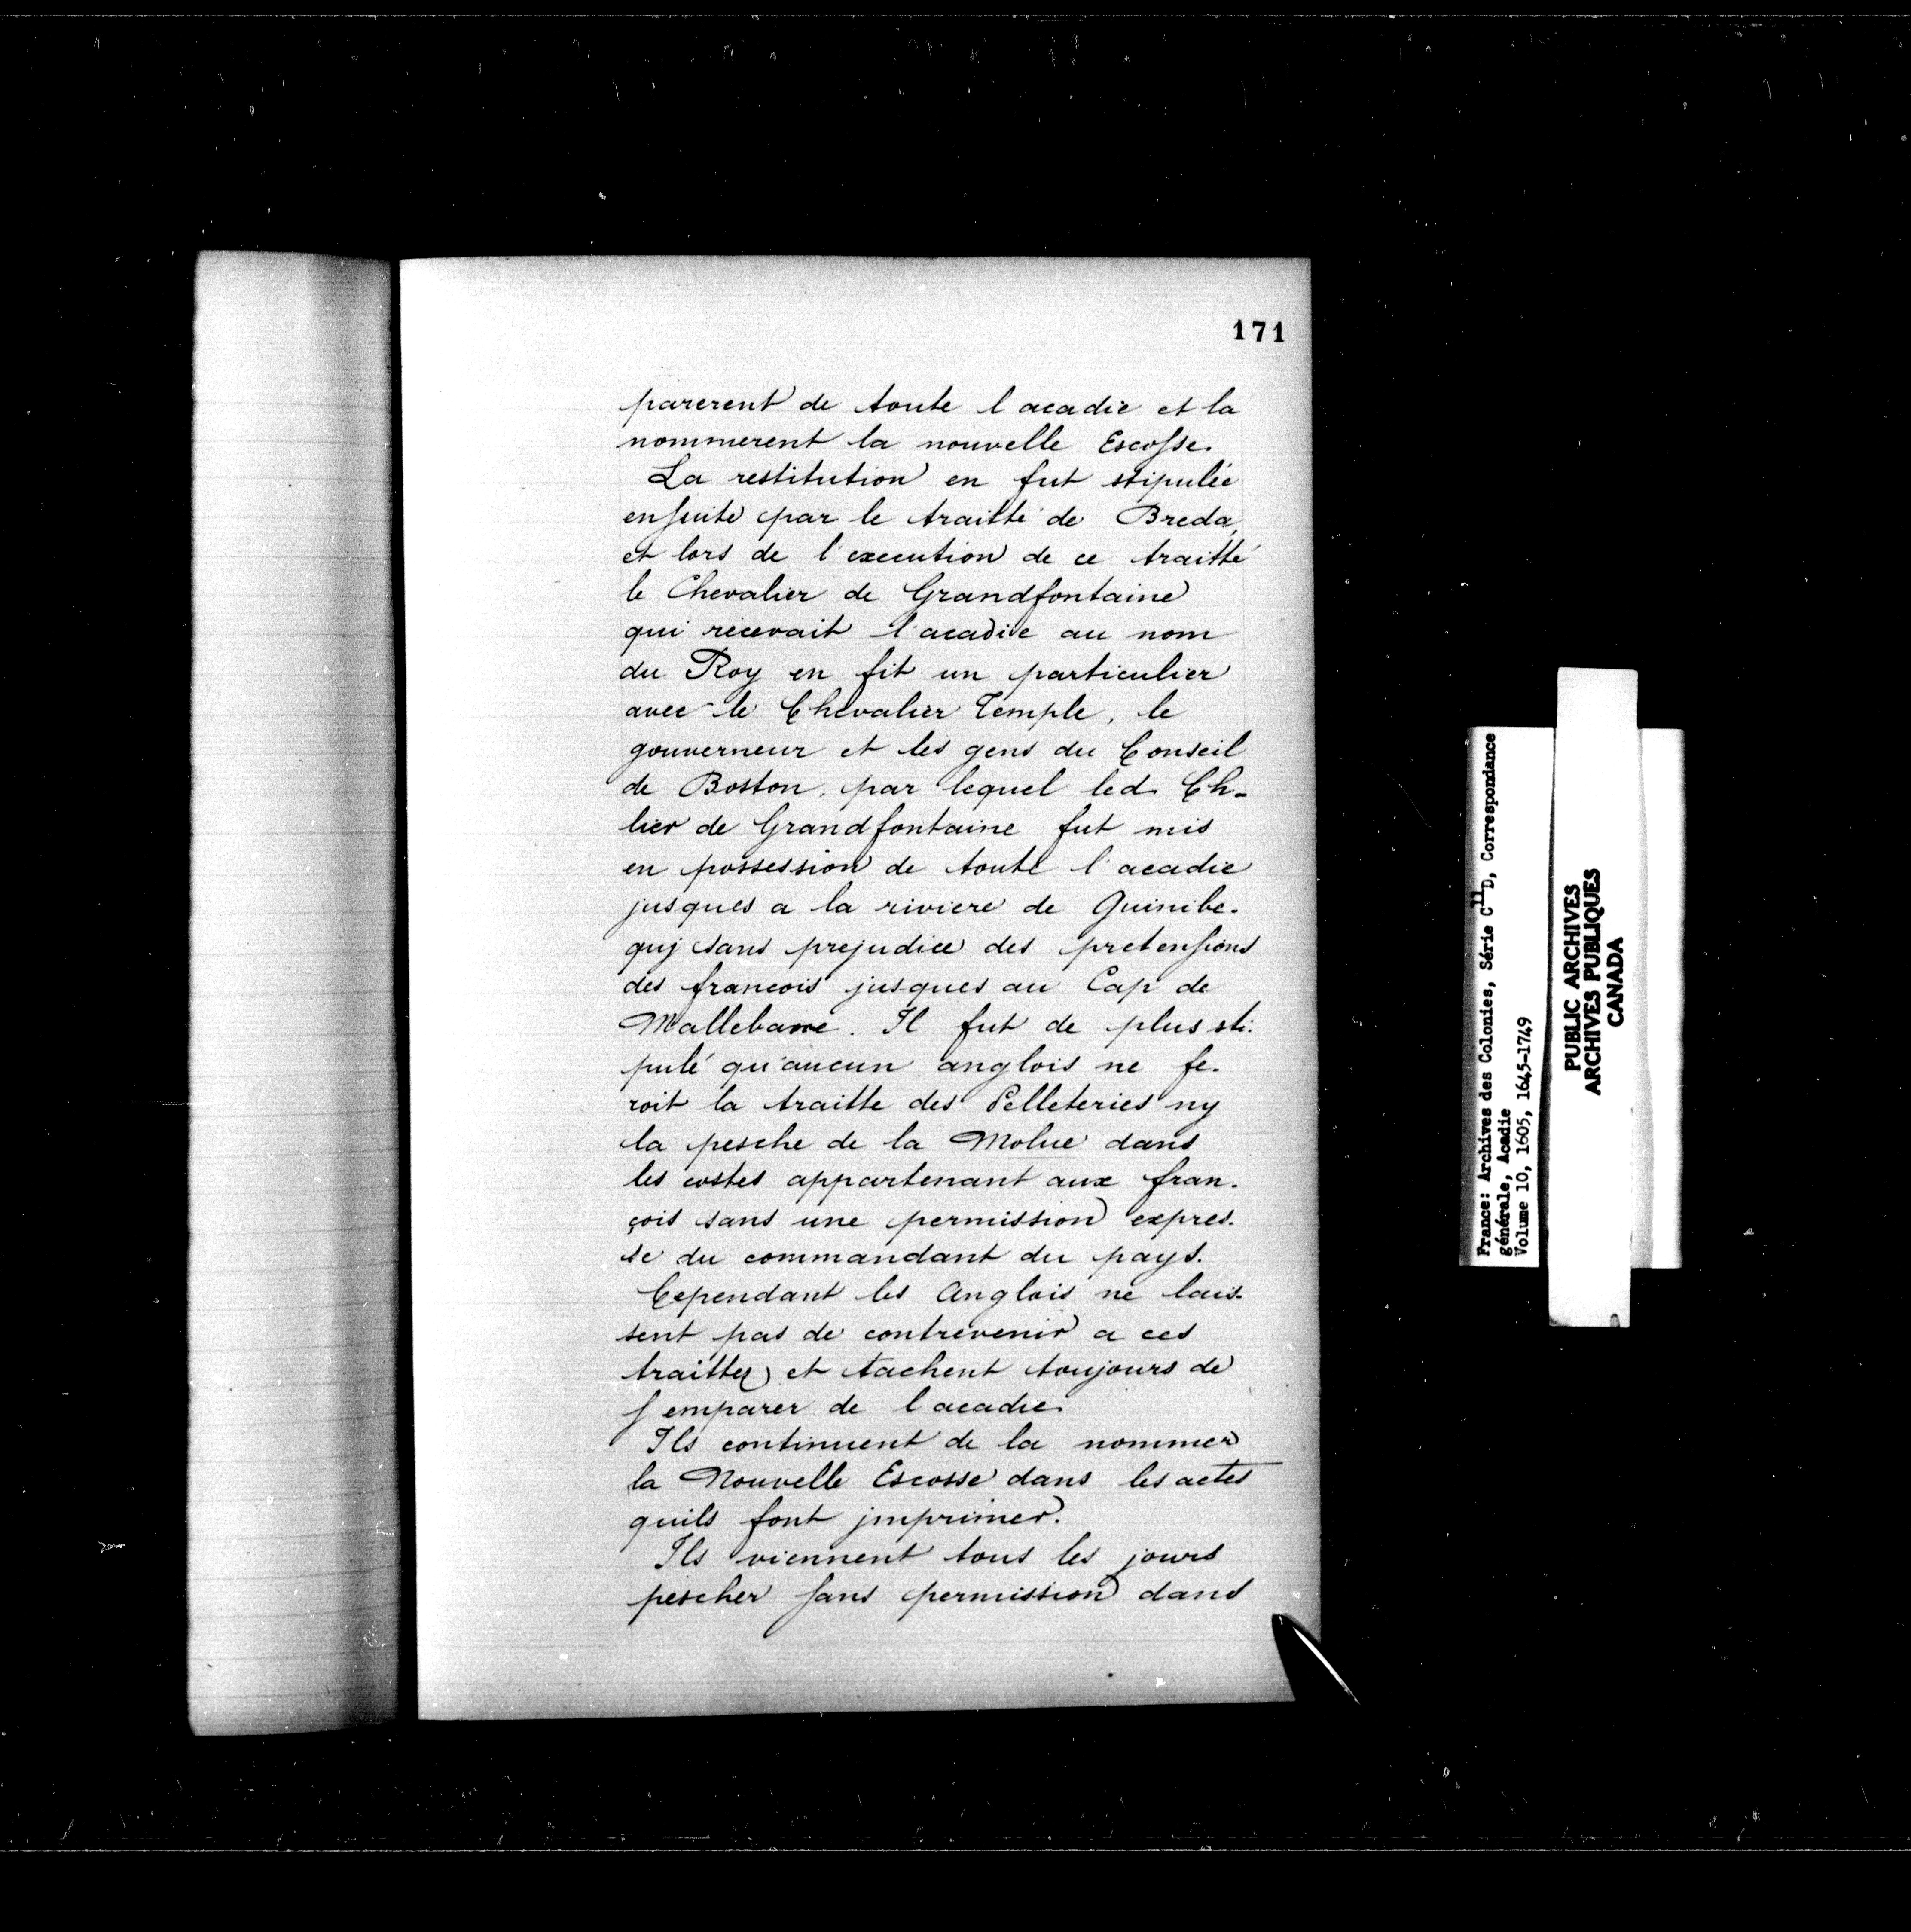 171
parerent de toute l acadie et la
nommerent la nouvelle Escoſse.
La restitution en fut stipulée
enſuite par le traitté de Breda,
et lors de l'execution de ce traitté
le Chevalier de Grandfontaine
qui recevait l'acadie au nom
du Roy en fit un particulier
avec le Chevalier Temple, le
gouverneur et les gens du Conseil
de Boston, par lequel led. Ch-
lier de Grandfontaine fut mis
en possession de toute l'acadie
jusques a la riviere de Quinibe-
quj sans prejudice des pretenſions
des francois jusques au Cap de
Mallebarre. Il fut de plus sti-
pulé qu'aucun anglois ne fe-
roit la traitte des Pelleteries ny
la pesche de la Molue dans
les costes appartenant aux fran-
çois sans une permission expres-
se du commandant du pays.
Cependant les Anglois ne lais-
sent pas de contrevenir a ces
traittez et tachent toujours de
ſ emparer de l acadie.
Ils continuent de la nommer
la Nouvelle Escosse dans les actes
quils font jmprimer.
Ils viennent tous les jours
pescher ſans permission dans
France: Archives des Colonies, Série C11D, Correspondance
générale, Acadie
Volume 10, 1605, 1645-1749
PUBLIC ARCHIVES
ARCHIVES PUBLIQUES
CANADA